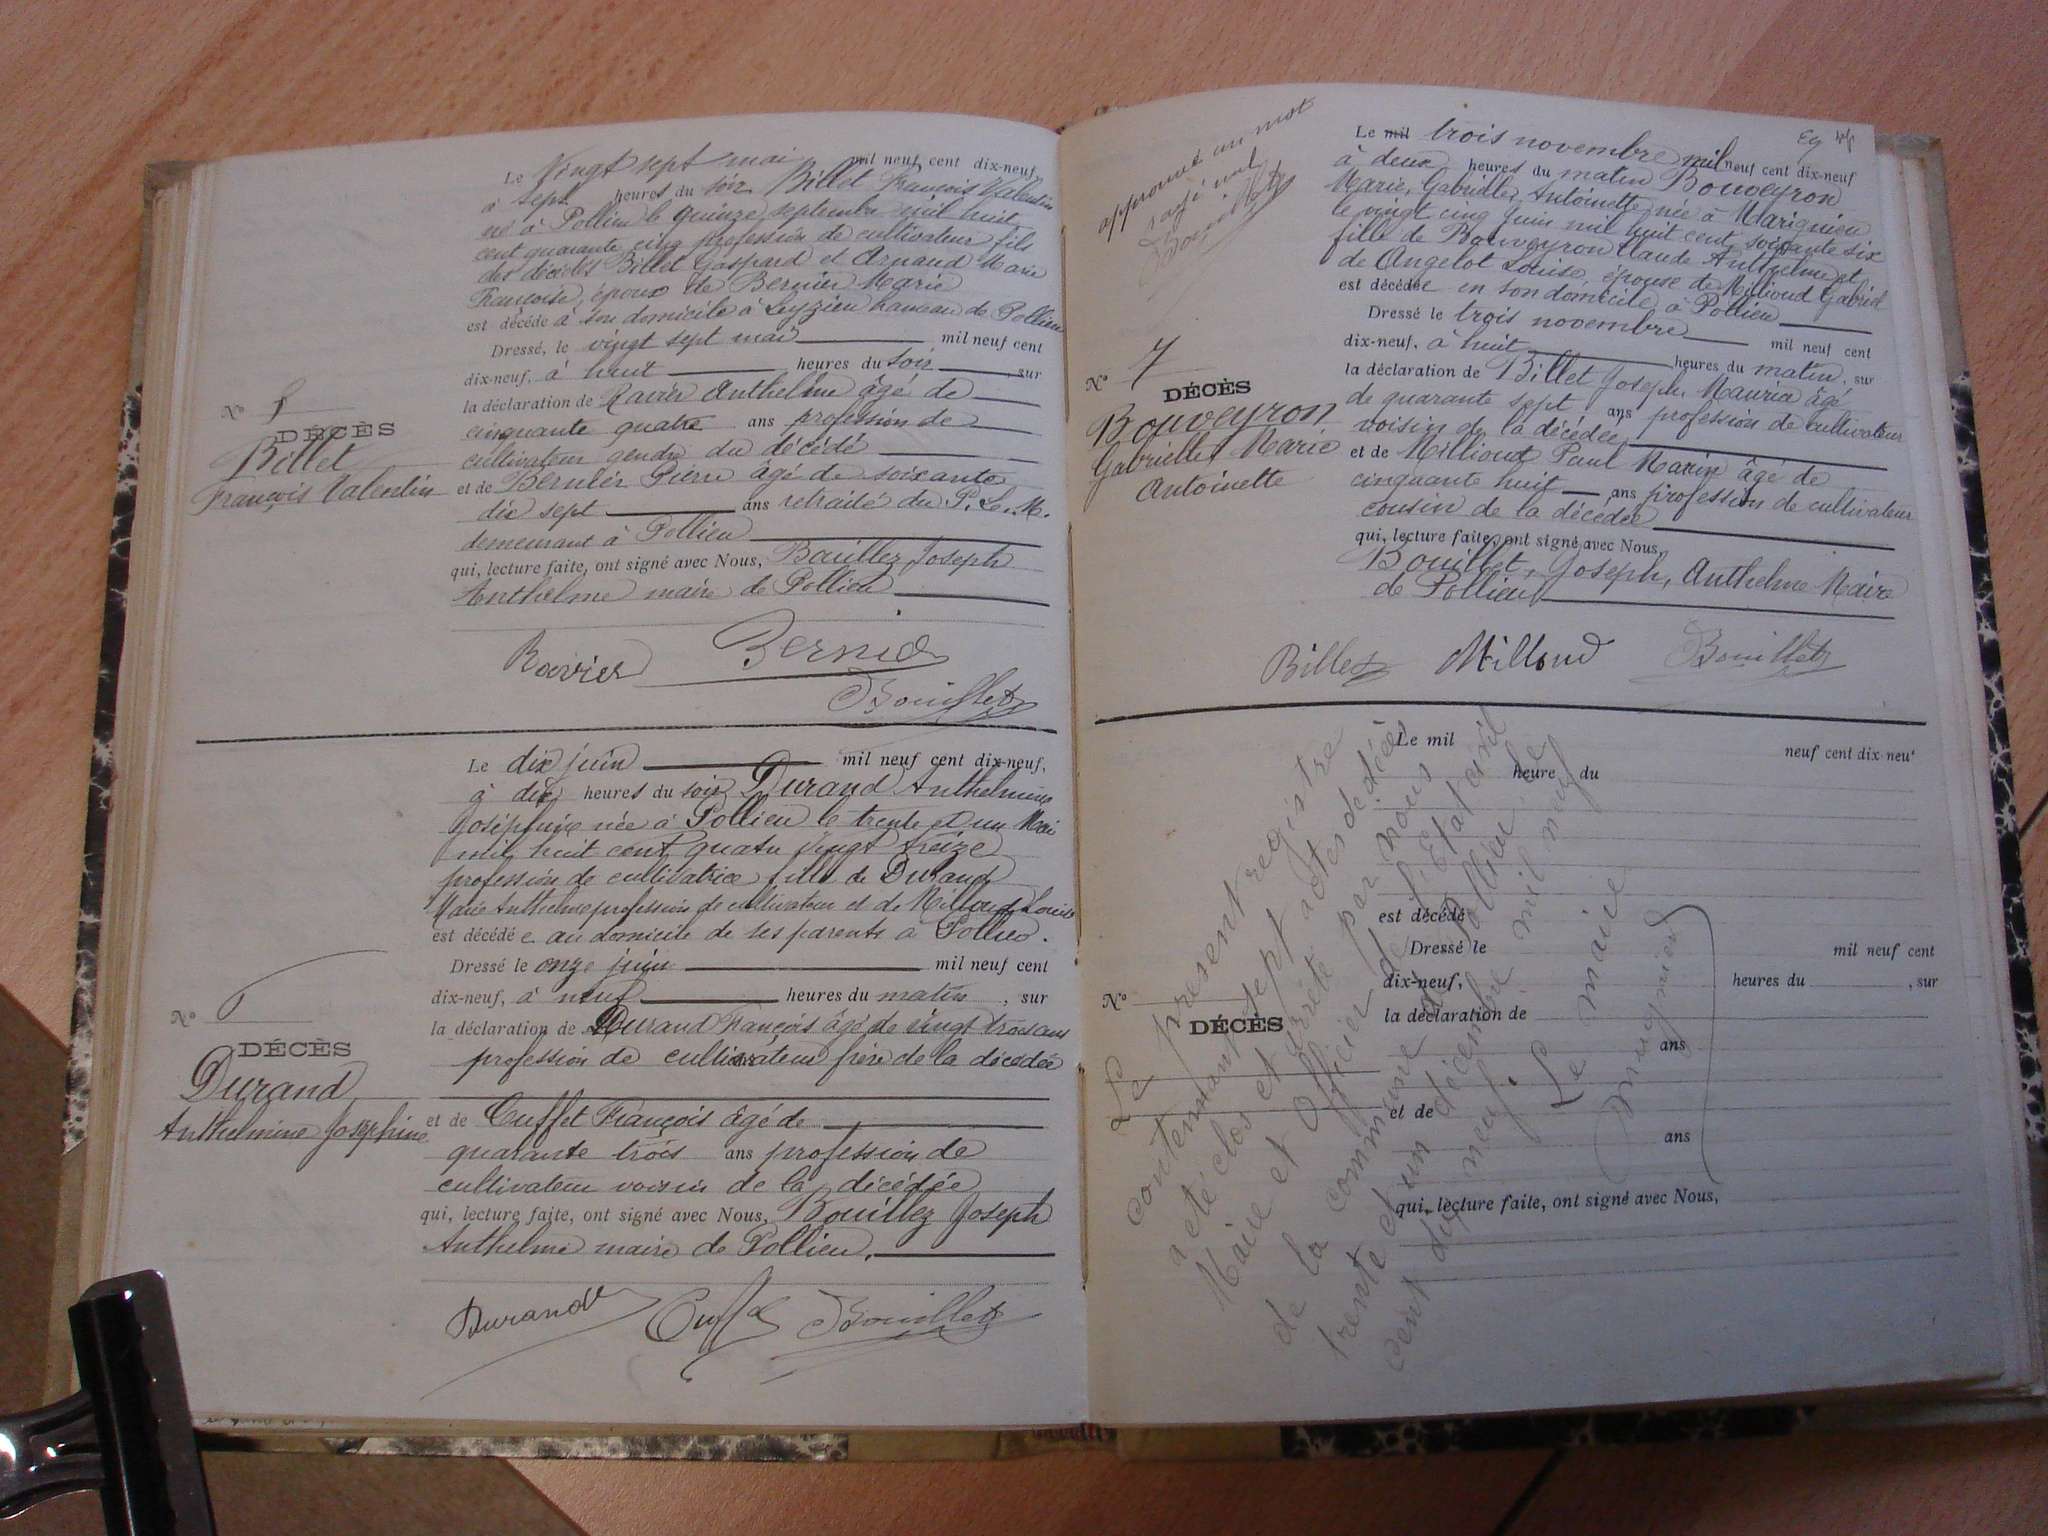 Le Vingt sept mai mil neuf cent dix-neuf,
à sept heures du soir Billet François Valentin
né à Pollieu le quinze septembre mil huit
cent quarante cinq profession de cultivateur fils
des décédés Billet Gaspard et Arnaud Marie
Françoise, époux de Bernier Marie
est décédé à son domicile à Leyzieu hameau de Pollieu
Dressé, le vingt sept mai mil neuf cent
dix-neuf, à huit heures du soir, sur
la déclaration de Ravier Anthelme âgé de
cinquante quatre ans profession de
cultivateur gendre du décédé
et de Bernier Pierre âgé de soixante
dix sept ans retraité du P. L. M.
demeurant à Pollieu
qui, lecture faite, ont signé avec Nous, Bouillez Joseph
Anthelme maire de Pollieu
Nº
DÉCÈS
Billet
François Valentin
Ravier Bernier
Bouillet
Le dix juin mil neuf cent dix-neuf,
à dix heures du soir Durand Anthelmine
Joséphine née à Pollieu le trente et un Mai
mil huit cent quatre vingt treize
profession de cultivatrice fille de Durand
Marie Anthelme profession de cultivateur et de Millioud Louise
est décédé e au domicile de ses parents à Pollieu.
Dressé le onze juin mil neuf cent
dix-neuf, à neuf heures du matin, sur
la déclaration de Durand François âgé de vingt trois ans
profession de cultivateur frère de la décédée
et de Cuffet François âgé de
quarante trois ans profession de
cultivateur voisin de la décédée
qui, lecture faite, ont signé avec Nous, Bouillez Joseph
Anthelme maire de Pollieu.
Nº 6
DÉCÈS
Durand
Anthelmine Josephine
Durand Cuffet Bouillet
approuvé un mot
rayé nul
Bouillet
Le mil trois novembre mil neuf cent dix-neuf
à deux heures du matin Bouveyron
Marie, Gabrielle, Antoinette, née à Marignieu
le vingt cinq juin mil huit cent soixante six
fille de Bouveyron Claude Anthelme et
de Angelot Louise, épouse de Millioud Gabriel
est décédée en son domicile à Pollieu
Dressé le trois novembre mil neuf cent
dix-neuf, à huit heures du matin, sur
la déclaration de Billet Joseph, Maurice âgé
de quarante sept ans profession de cultivateur
voisin de la décédée
et de Millioud Paul Marin âgé de
cinquante huit ans profession de cultivateur
cousin de la décédée
qui, lecture faite, ont signé avec Nous,
Bouillet, Joseph, Anthelme Maire
de Pollieu
Nº 7
DÉCÈS
Bouveyron
Gabrielle, Marie
Antoinette
Billet Millioud Bouillet
Le mil neuf cent dix-neuf
heure du
est décédé
Dressé le mil neuf cent
dix-neuf, heures du , sur
la déclaration de
ans
et de
ans
qui, lecture faite, ont signé avec Nous,
Nº
DÉCÈS
Le présent registre
contenant sept actes de décès
a été clos et arrêté par nous
Maire et Officier de l'Etat civil
de la commune de Pollieu le
trente et un décembre mil neuf
cent dix neuf.
Le maire